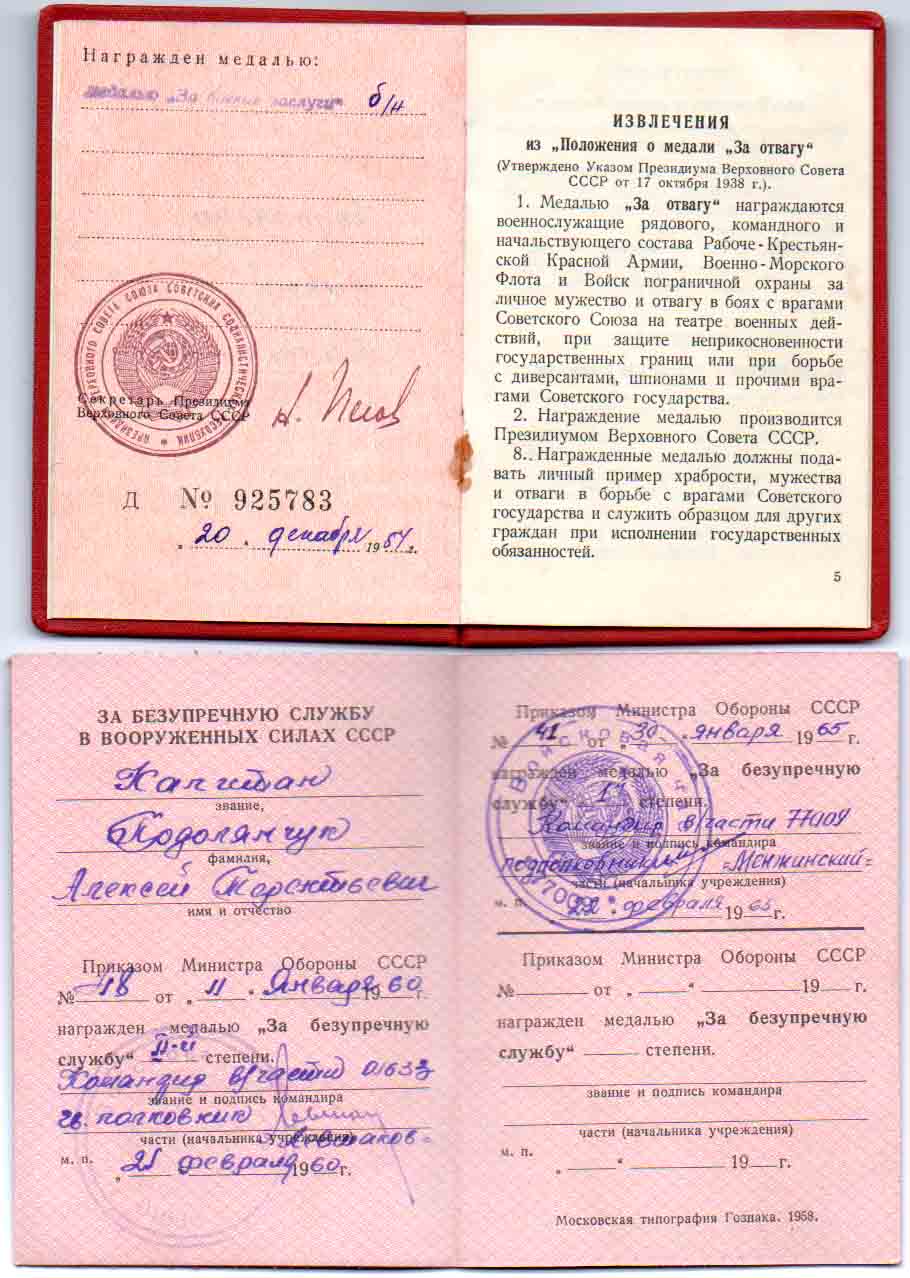 Награжден медалью:
медалью „За боевые заслуги“ б/н
ВЕРХОВНОГО СОВЕТА СОЮЗА СОВЕТСКИХ СОЦИАЛИСТИЧЕСКИХ РЕСПУБЛИК
Секретарь Президиума
Верховного Совета СССР
Д № 925783
„ 20 “ декабря 1954 г.
ИЗВЛЕЧЕНИЯ
из „Положения о медали „За отвагу“
(Утверждено Указом Президиума Верховного Совета
СССР от 17 октября 1938 г.).
1. Медалью „За отвагу“ награждаются
военнослужащие рядового, командного и
начальствующего состава Рабоче-Крестьян-
ской Красной Армии, Военно-Морского
Флота и Войск пограничной охраны за
личное мужество и отвагу в боях с врагами
Советского Союза на театре военных дей-
ствий, при защите неприкосновенности
государственных границ или при борьбе
с диверсантами, шпионами и прочими вра-
гами Советского государства.
2. Награждение медалью производится
Президиумом Верховного Совета СССР.
8.. Награжденные медалью должны пода-
вать личный пример храбрости, мужества
и отваги в борьбе с врагами Советского
государства и служить образцом для других
граждан при исполнении государственных
обязанностей.
5
ЗА БЕЗУПРЕЧНУЮ СЛУЖБУ
В ВООРУЖЕННЫХ СИЛАХ СССР
Капитан
звание,
Подолянчук
фамилия,
Алексей Терентьевич
имя и отчество
Приказом Министра Обороны СССР
№ 18 от „ 11 “ Января 1960 г.
награжден медалью „За безупречную
службу“ II-й степени.
Командир в/части 01633
звание и подпись командира
гв. полковник
части (начальника учреждения)
м. п.
„ 25 “ февраля 1960 г.
Приказом Министра Обороны СССР
№ 41 от „ 30 “ января 1965 г.
награжден медалью „За безупречную
службу“ степени.
Командир в/части 77009
звание и подпись командира
подполковник =Менжинский=
части (начальника учреждения)
м. п. „ 22 “ февраля 1965 г.
Войсковая
Приказом Министра Обороны СССР
№ от „ “ 19 г.
награжден медалью „За безупречную
службу“ степени.
звание и подпись командира
части (начальника учреждения)
м. п.
„ “ 19 г.
Московская типография Гознака. 1958.